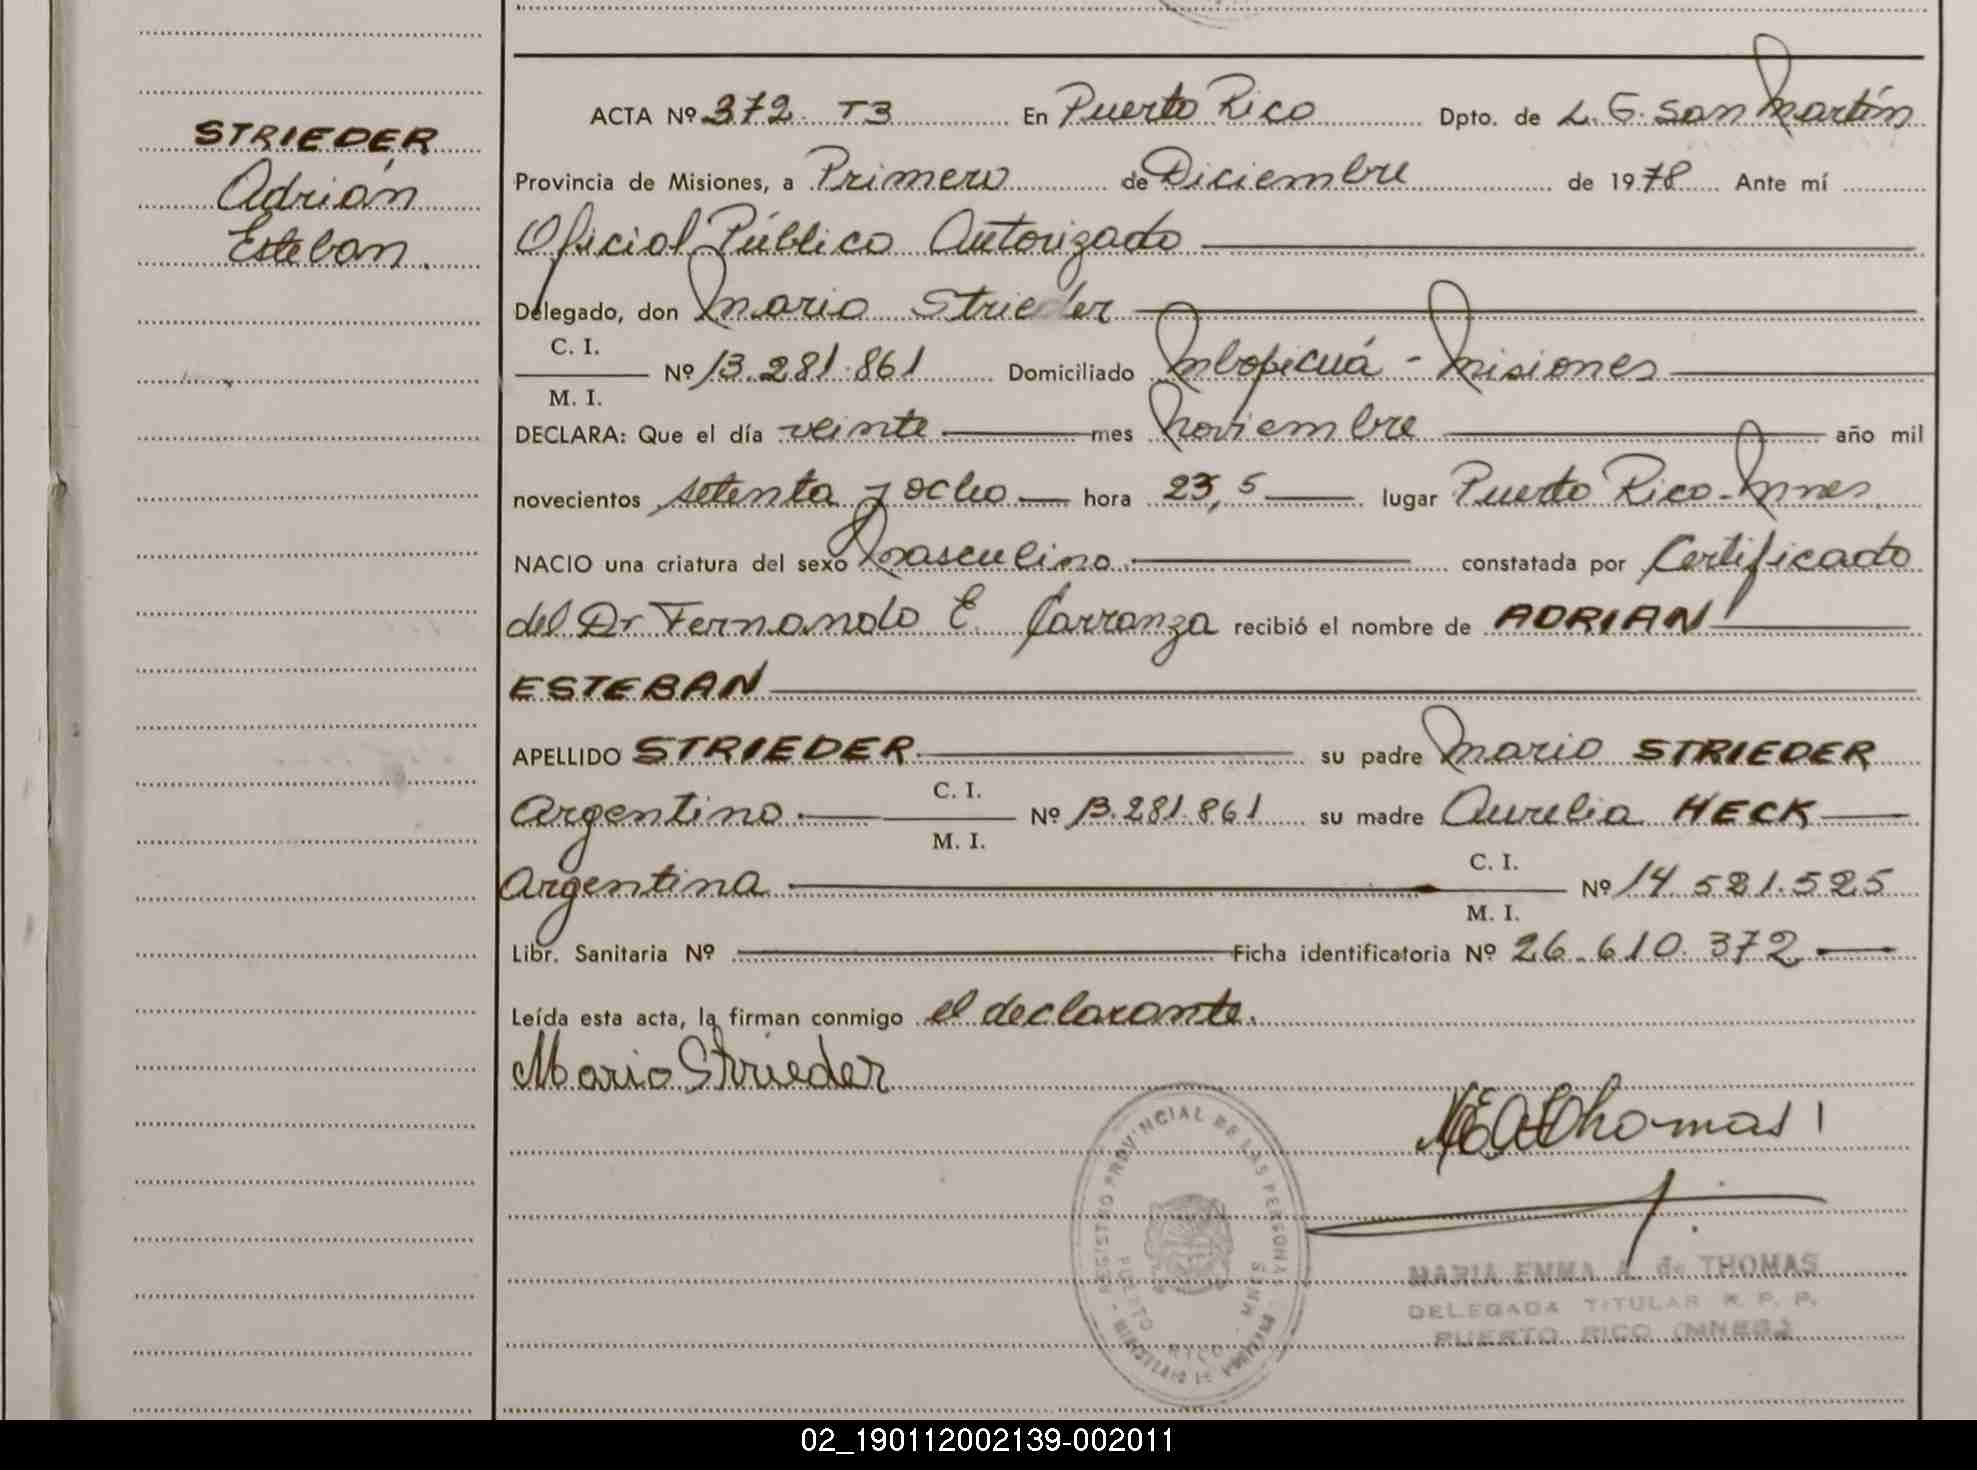 STRIEDER
Adrián
Esteban.
ACTA Nº 372 T3 En Puerto Rico Dpto. de L. G. San Martín
Provincia de Misiones, a Primero de Diciembre de 1978 Ante mí
Oficial Público Autorizado
Delegado, don Mario Strieder
C. I.
Nº 13.281.861 Domiciliado Mbopicuá - Misiones
M. I.
DECLARA: Que el día veinte mes Noviembre año mil
novecientos setenta y ocho hora 23,5 lugar Puerto Rico-Mnes
NACIO una criatura del sexo masculino constatada por Certificado
del Dr Fernando E. Carranza recibió el nombre de ADRIAN
ESTEBAN
APELLIDO STRIEDER su padre Mario STRIEDER
C. I.
Argentino Nº 13.281.861 su madre Aurelia HECK
M. I.
C. I.
Argentina Nº 14 521.525
M. I.
Libr. Sanitaria Nº Ficha identificatoria Nº 26.610.372
Leída esta acta, la firman conmigo el declarante.
Mario Strieder
MEA Thomas
REGISTRO PROVINCIAL DE LAS PERSONAS
PUERTO RICO - MNES
MARIA EMMA A. de THOMAS
DELEGADA TITULAR R. P. P.
PUERTO RICO (MNES.)
02_190112002139-002011